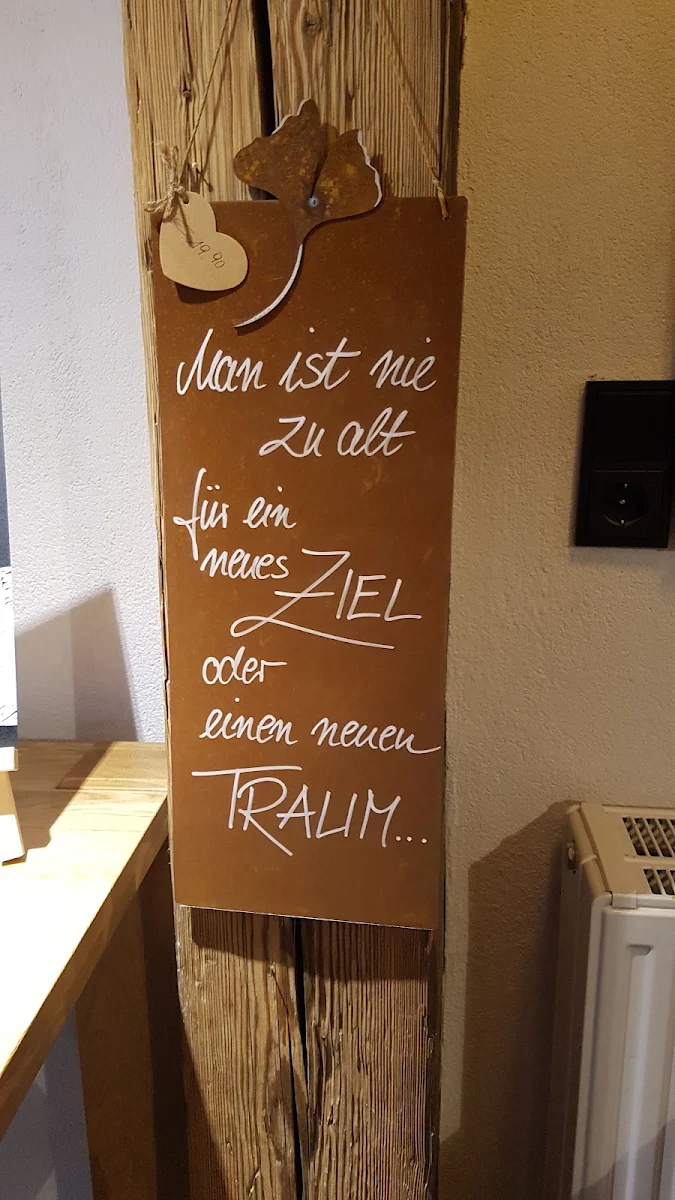 19,90
Man ist nie
zu alt
für ein
neues ZIEL
oder
einen neuen
TRAUM...